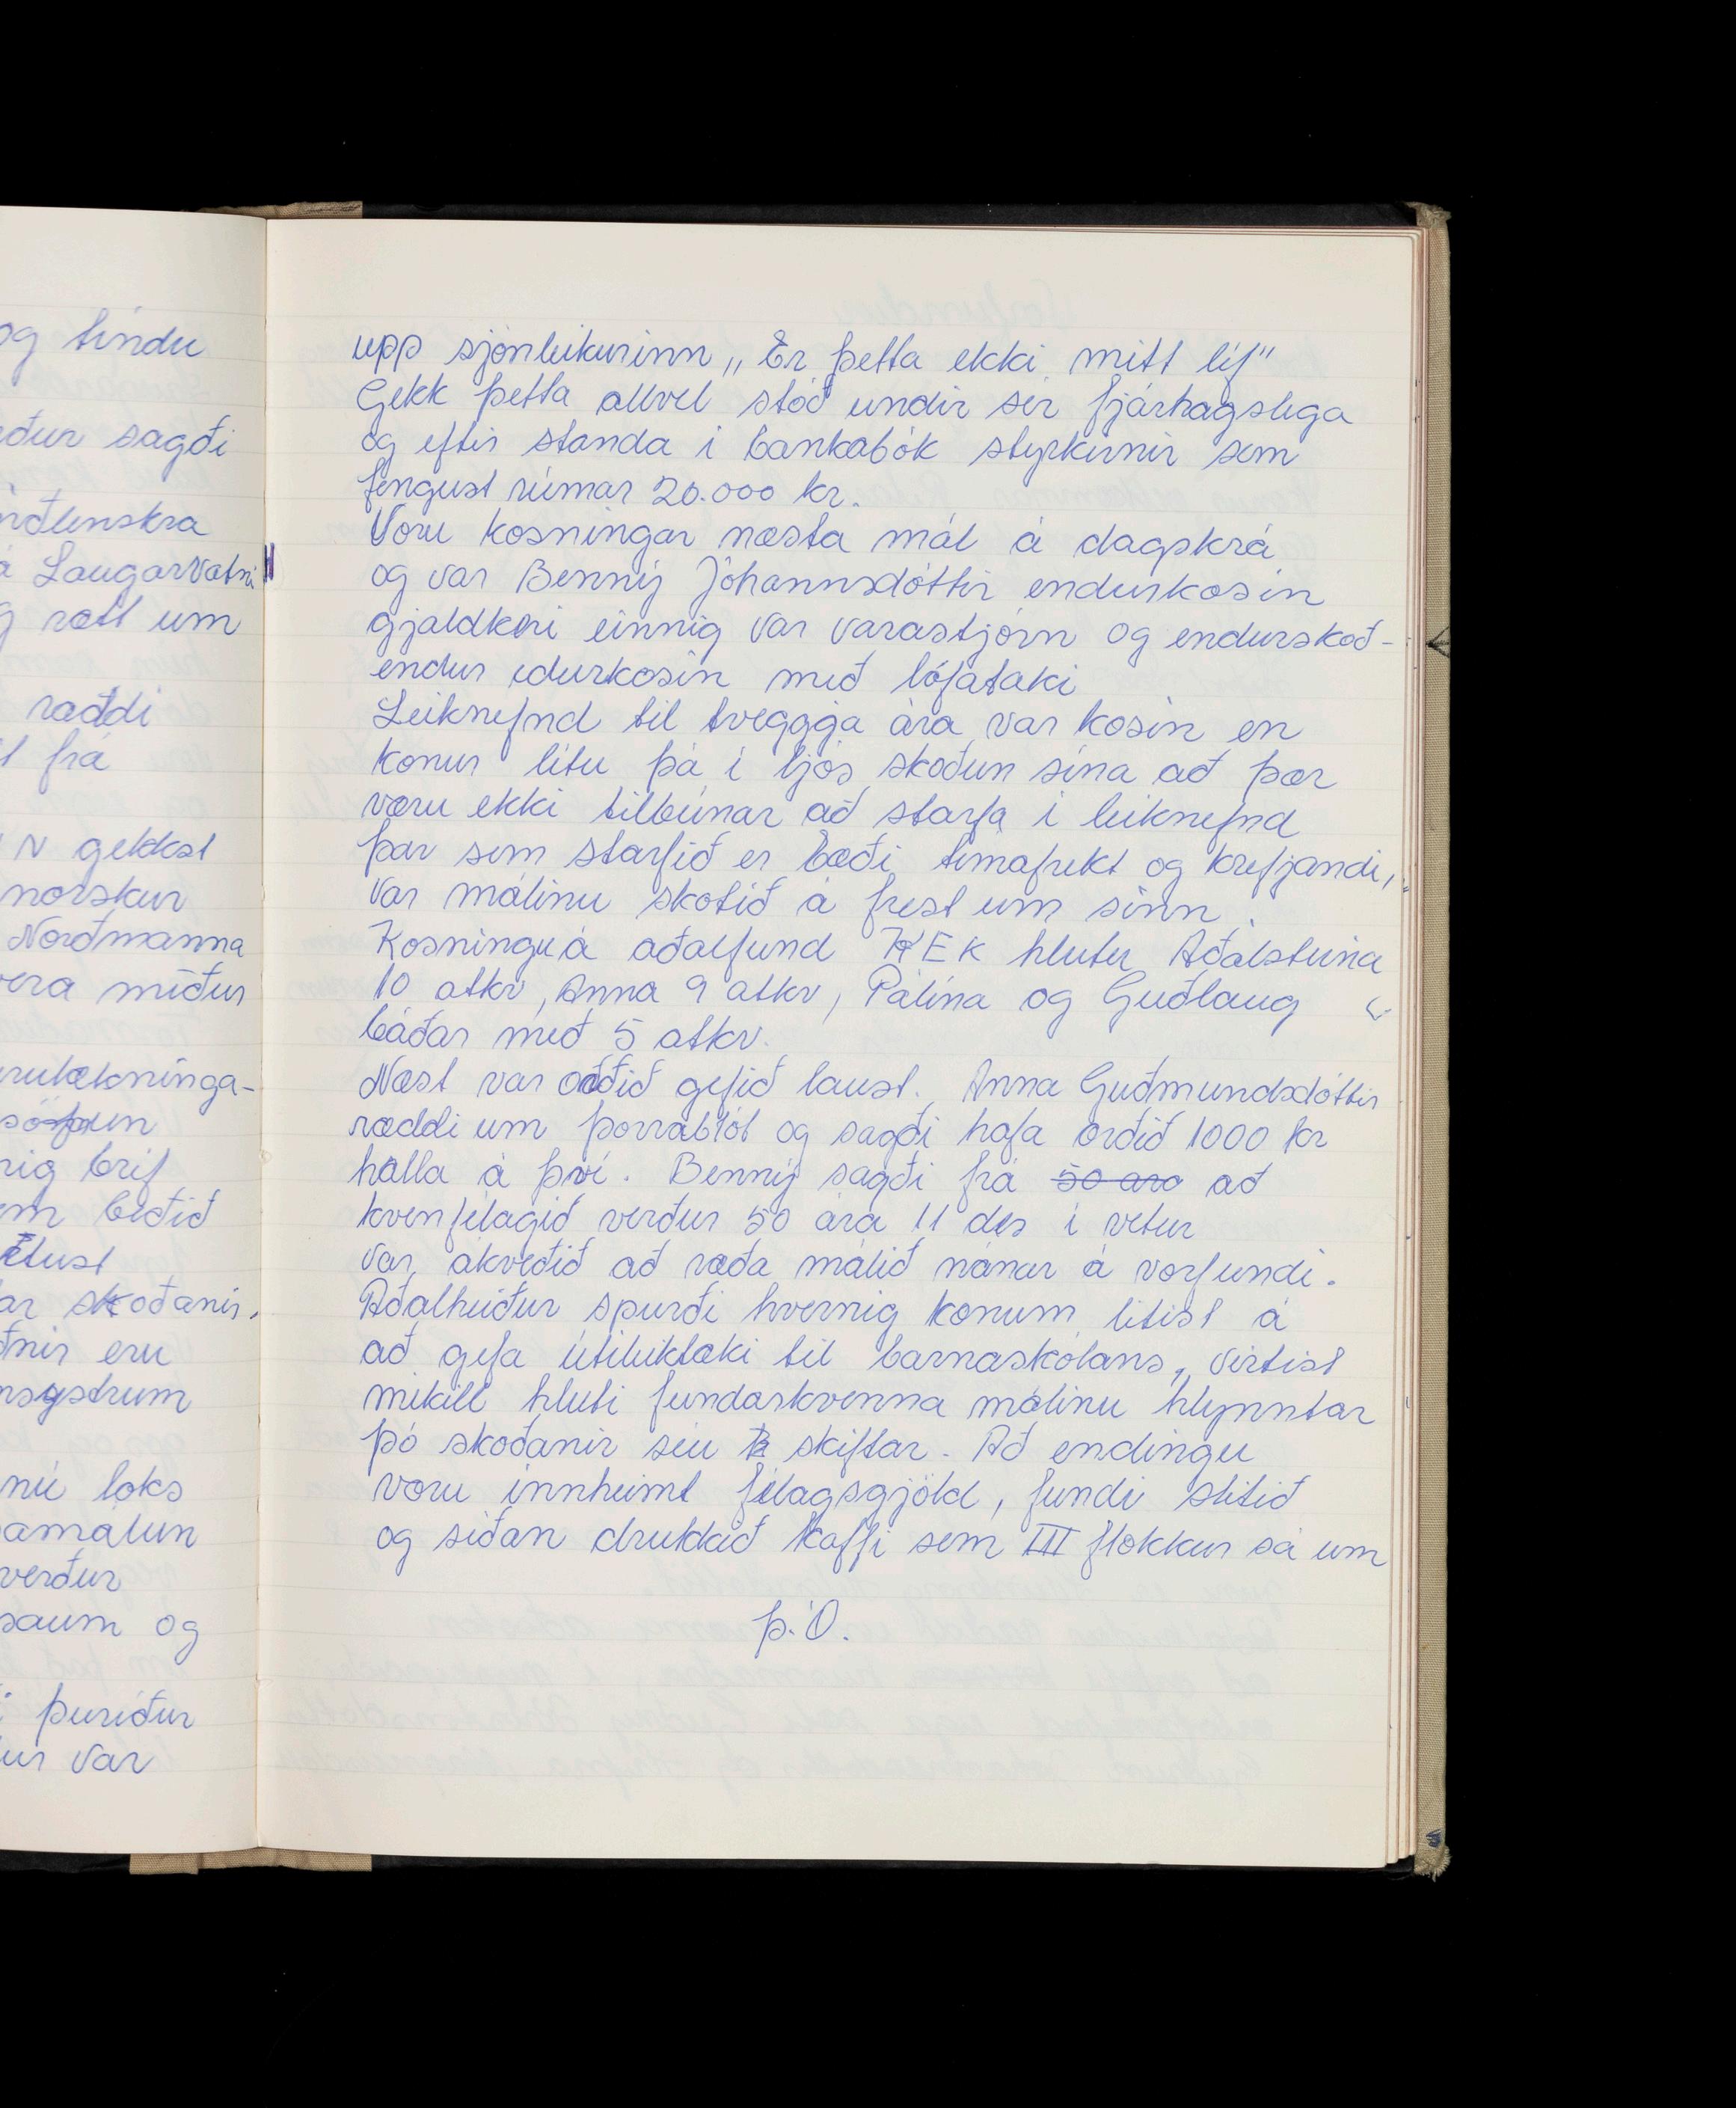 og tíndu
eður sagði
rðlenskra
á Laugarvatni
rætt um
ræddi
frá
N gekkst
norskur
Norðmanna
vera míður
rulækninga-
rig bréf
um beðið
ar skoðanir,
eru
nsystrum
nú loks
verður
saum og
þuríður
ur var
upp sjónleikurinn „Er þetta ekki mitt líf"
Gekk þetta allvel stóð undir sér fjárhagslega
og eftir standa í bankabók styrkirnir sem
fengust rúmar 20.000 kr.
Voru kosningar næsta mál á dagskrá
og var Benný Jóhannsdóttir endurkosin
gjaldkeri einnig var varastjórn og endurskoð-
endur edurkosin með lófataki
Leiknefnd til tveggja ára var kosin en
konur létu þá í ljós skoðun sína að þær
væru ekki tilbúnar að starfa í leiknefnd
þar sem starfið er bæði tímafrekt og krefjandi,
var málinu skotið á frest um sinn.
Kosningu á aðalfund KEK hlutu Aðalsteina
10 atkv, Anna 9 atkv, Pálína og Guðlaug
báðar með 5 atkv.
Næst var orðið gefið laust. Anna Guðmundsdóttir
ræddi um þorrablót og sagði hafa orðið 1000 kr
halla á því. Benný sagði frá 50 ára að
kvenfélagið verður 50 ára 11 des í vetur
var ákveðið að ræða málið nánar á vorfundi.
Aðalheiður spurði hvernig konum litist á
að gefa útileiktæki til barnaskólans, virtist
mikill hluti fundarkvenna málinu hlynntar
þó skoðanir séu skiftar. Að endingu
voru innheimt félagsgjöld, fundi slitið
og síðan drukkið kaffi sem III flokkur sá um
Þ.Ó.